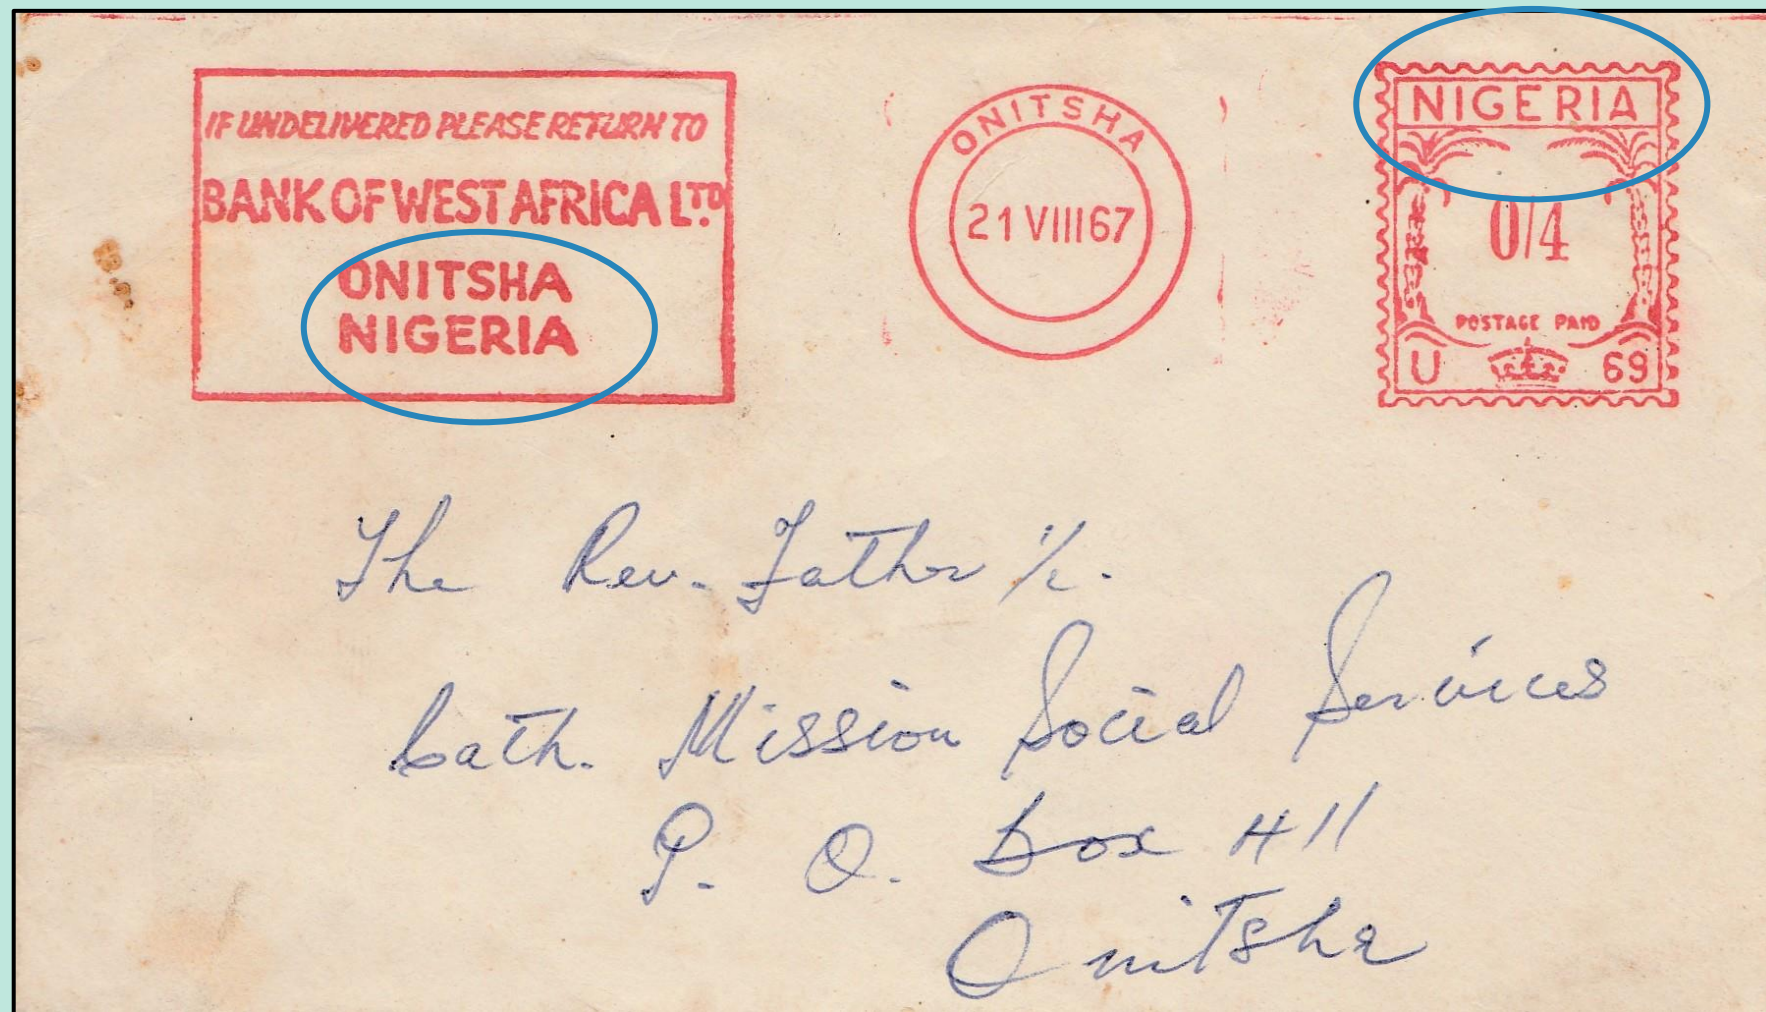 IF UNDELIVERED PLEASE RETURN TO
BANK OF WEST AFRICA LTD.
ONITSHA
NIGERIA
ONITSHA
21 VIII 67
NIGERIA
0/4
POSTAGE PAID
U 69
The Rev. Father i/c.
Cath. Mission Social Services
P. O. Box 411
Onitsha